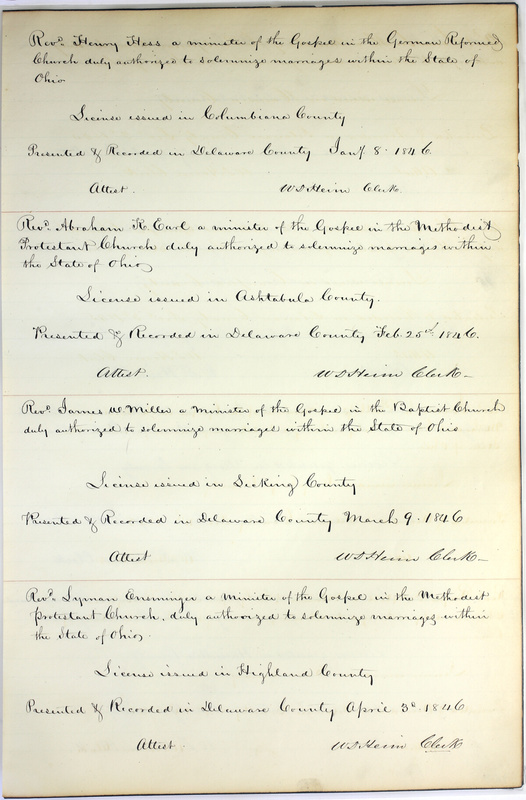 Revd. Henry Hess a minister of the Gospel in the German Reformed
Church duly authorized to solemnize marriages within the State of
Ohio
License issued in Columbiana County
Presented & Recorded in Delaware County Jany. 8. 1846.
Attest. W D Heim Clerk.
Revd. Abraham K. Earl a minister of the Gospel in the Methodist
Protestant Church duly authorized to solemnize marriages within
the State of Ohio
License issued in Ashtabula County.
Presented & Recorded in Delaware County Feb. 25th. 1846.
Attest. W D Heim Clerk
Revd. James W. Miller a Minister of the Gospel in the Baptist Church
duly authorized to solemnize marriages within the State of Ohio
License issued in Licking County
Presented & Recorded in Delaware County March 9. 1846
Attest W D Heim Clerk
Revd. Lyman Ensminger a Minister of the Gospel in the Methodist
Protestant Church, duly authorized to solemnize marriages within
the State of Ohio.
License issued in Highland County
Presented & Recorded in Delaware County April 3d. 1846
Attest W D Heim Clerk